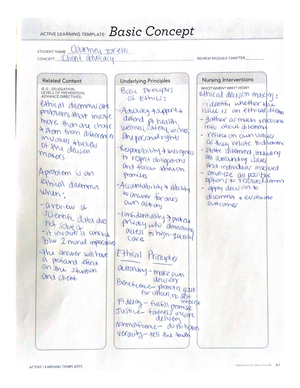 ACTIVE LEARNING TEMPLATE: Basic Concept
STUDENT NAME Courtney
CONCEPT Client advocacy
REVIEW MODULE CHAPTER
Related Content
(E.G., DELEGATION,
LEVELS OF PREVENTION,
ADVANCE DIRECTIVES)
Ethical dilemmas are
problems that involve
more than one choice
& stem from differences in
values & beliefs
of the decision
makers.
A problem is an
ethical dilemma
when:
- a review of
scientific data does
not solve it
- it involves a conflict
b/w 2 moral imperatives
- the answer will have
a profound effect
on the situation
and client
Underlying Principles
Basic Principles
of Ethics:
- Advocacy: support &
defend pt health,
wellness, safety, wishes
and personal rights
- Responsibility: willingness
to respect obligations
and follow through on
promises
- Accountability: ability
to answer for ones
own actions
- Confidentiality: protect
privacy w/o diminishing
access to high-quality
care
Ethical Principles
Autonomy - make own
decisions
Beneficence - promotes good
for others, no self
interest
Fidelity - fulfill promises
Justice - fairness in care
delivery
Nonmaleficence - do no harm
Veracity - tell the truth
Nursing Interventions
WHO? WHEN? WHY? HOW?
Ethical decision making:
- identify whether the
issue is an ethical dilemma
- gather as much relevant
info about dilemma
- reflect on own values
as they relate to dilemma
- state dilemma, including
all surrounding issues
and individuals involved
- analyze all possible
options to
- apply decision to
dilemma & evaluate
outcomes
ACTIVE LEARNING TEMPLATES